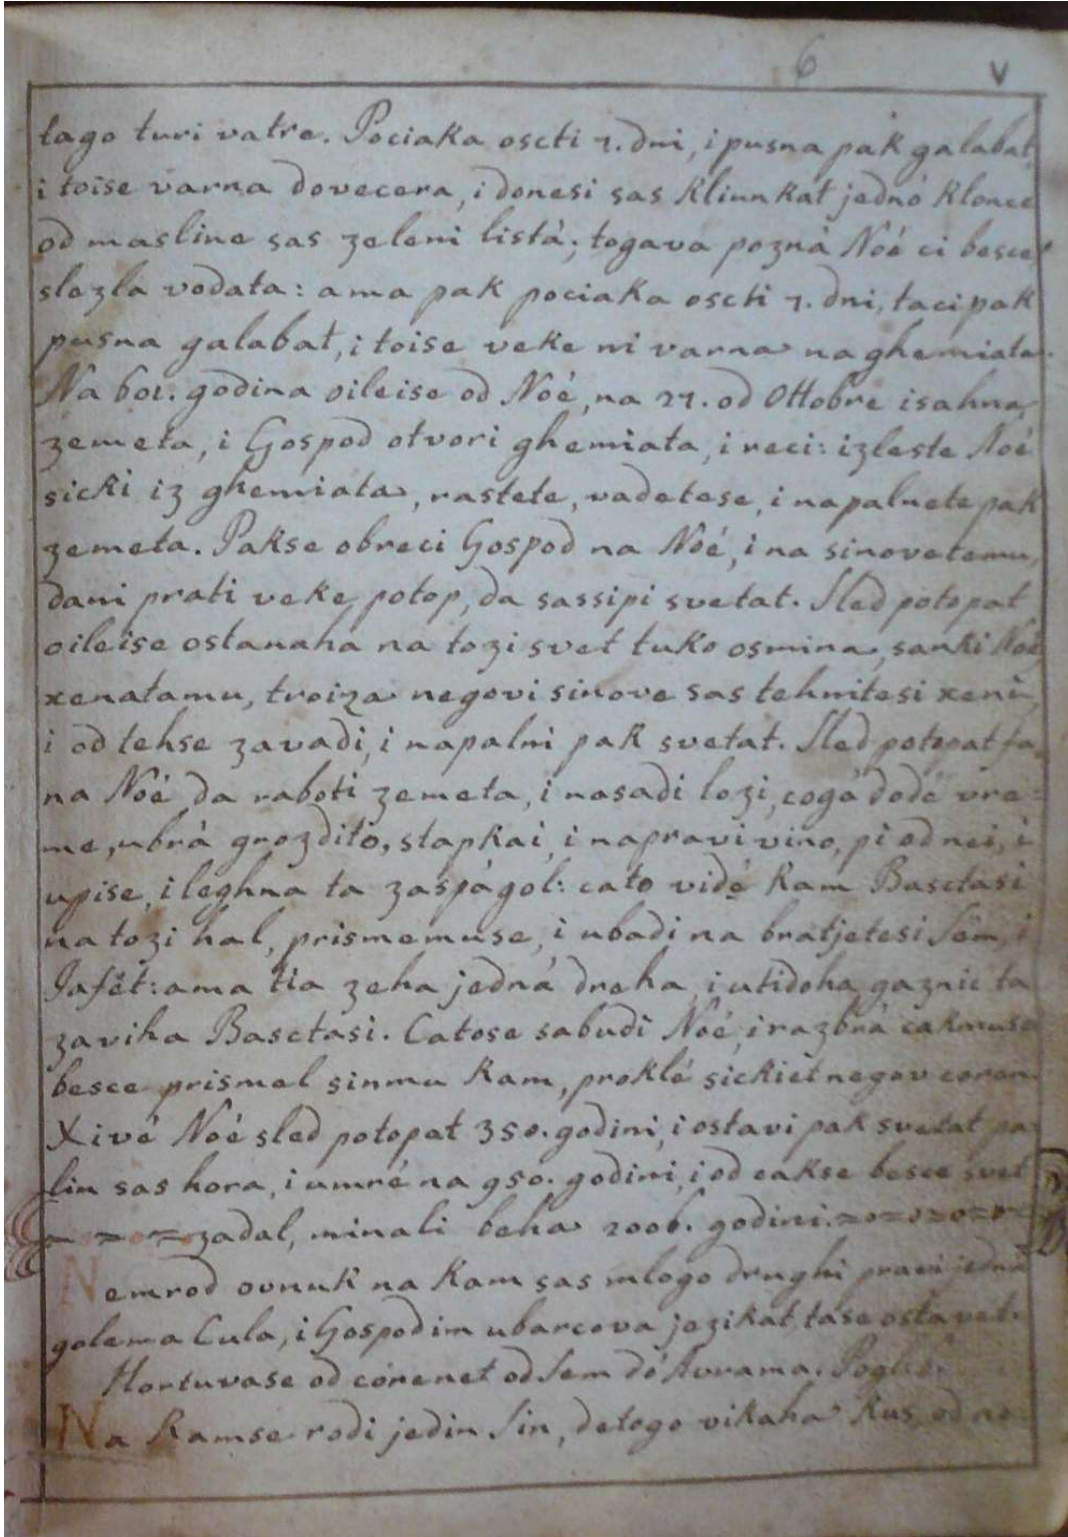 6 V
tago turi vatre. Pociaka oscti 7. dni, i pusna pak galabat,
i toise varna dovecera, i donesi sas kliunkat jednó klonce
od masline sas zeleni listá; togava pozná Noé ci besce
slezla vodata: ama pak pociaka oscti 7. dni, taci pak
pusna galabat, i toise veke ni varna na ghemiata.
Na 601. godina oileise od Noé, na 27. od Ottobre isahna
zemeta, i Gospod otvori ghemiata, i reci: izleste Noé
sicki iz ghemiata, rastete, vadetese, i napalnete pak
zemeta. Pakse obreci Gospod na Noé, i na sinovetemu,
dani prati veke potop, da sassipi svetat. Sled potopat
oileise ostanaha na tozi svet tuko osmina, sanki Noé,
xenatamu, troiza negovi sinove sas tehnitesi xeni,
i od tehse zavadi, i napalni pak svetat. Sled potopat fa
na Noé da raboti zemeta, i nasadi lozi, cogá dodé vre=
me, ubrá grozdito, stapkai, i napravi vino, pi od nei, i
upise, i leghna ta zaspá gol: cato vidé Kam Basctasi
na tozi hal, prismemuse, i ubadi na bratjetesi Sêm, i
Jafêt: ama tia zeha jedná dreha, i utidoha gaznic ta
zaviha Basctasi. Catose sabudi Noé, i razbrá cakmuse
besce prismel sinmu Kam, proklé sickiet negov coren.
Xivé Noé sled potopat 350. godini, i ostavi pak svetat pa
lin sas hora, i umré na 950. godini, i od cakse besce svet
zadal, minali beha 2006. godini.
Nemrod ovnuk na Kam sas mlogo drughi pravi jedná
golema Cula, i Gospodim ubarcova jezikat, tase ostavet.
Hortuvase od córenet od Sem dó Avrama.
Na Kamse rodi jedin Sin, detogo vikaha Kus, od ne